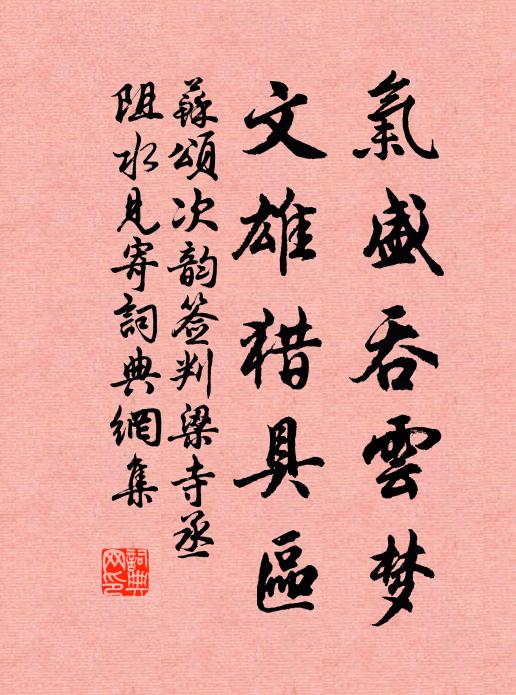 氣盛吞雲梦
文雄猎具區
蘇頌次韵签判梁寺丞
阻水見寄詞典網集
詞典网印